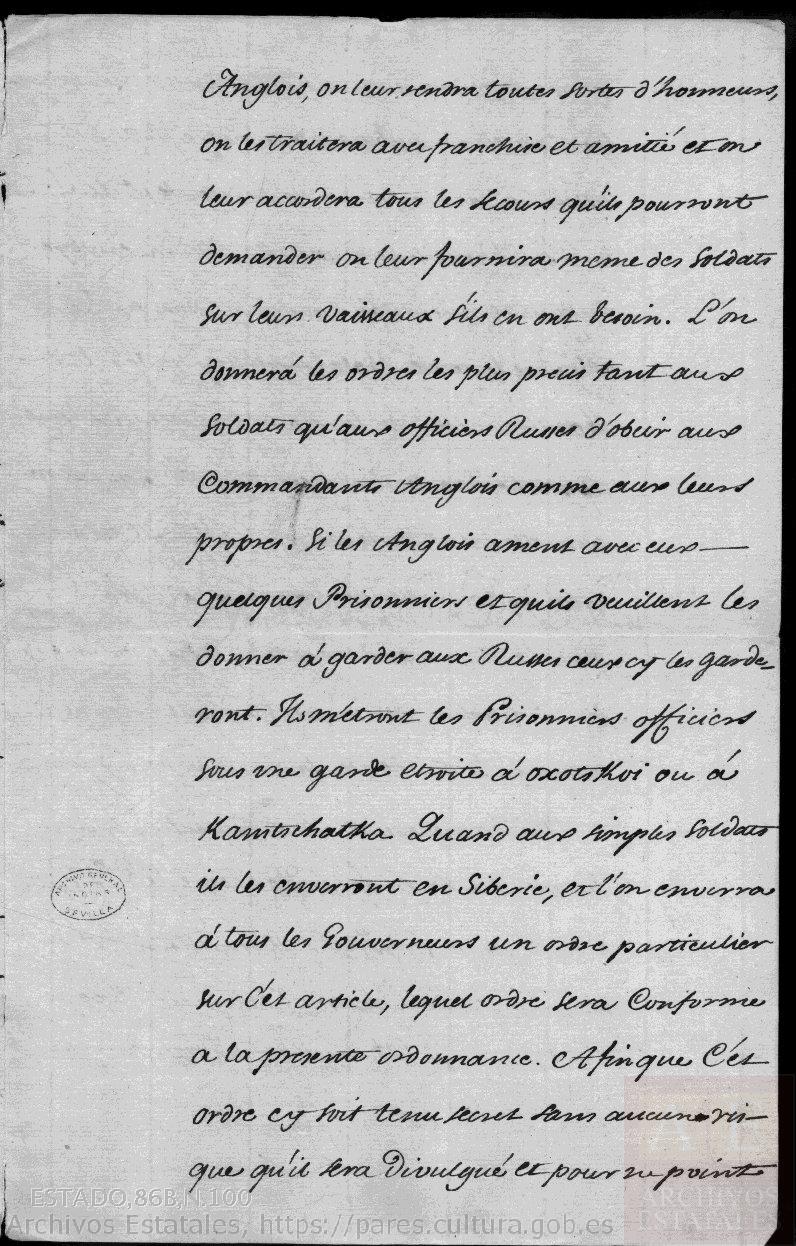 Anglois, on leur rendra toutes sortes d'honneurs,
on les traitera avec franchise et amitié et on
leur accordera tous les secours qu'ils pourront
demander on leur fournira meme des Soldats
sur leurs Vaisseaux s'ils en ont besoin. L'on
donnerá les ordres les plus precis tant aux
Soldats qu'aux officiers Russes d'obeir aux
Commandants Anglois comme aux leurs
propres. Si les Anglois ament avec eux —
quelques Prisonniers et quils veuillent les
donner á garder aux Russes ceux cy les garde-
ront. Ils métront les Prisonniers officiers
sous une garde etroite á oxotskoi ou á
Kamtschatka. Quand aux simples Soldats
ils les enverront en Siberie, et l'on enverra
á tous les Gouverneurs un ordre particulier
sur Cét article, lequel ordre sera Conforme
a la presente ordonnance. Afin que Cét
ordre cy soit tenu secret sans aucune ris-
que qu'il sera Divulgué et pour ne point
ARCHIVO GENERAL
DE
INDIAS
SEVILLA
ESTADO,86B,N.100
Archivos Estatales, https://pares.cultura.gob.es
ARCHIVOS
ESTATALES